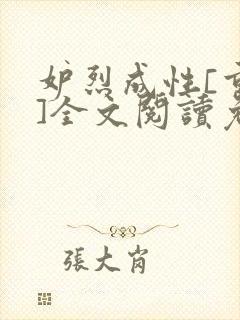 妒烈成性[
]全文閱讀
張大肖